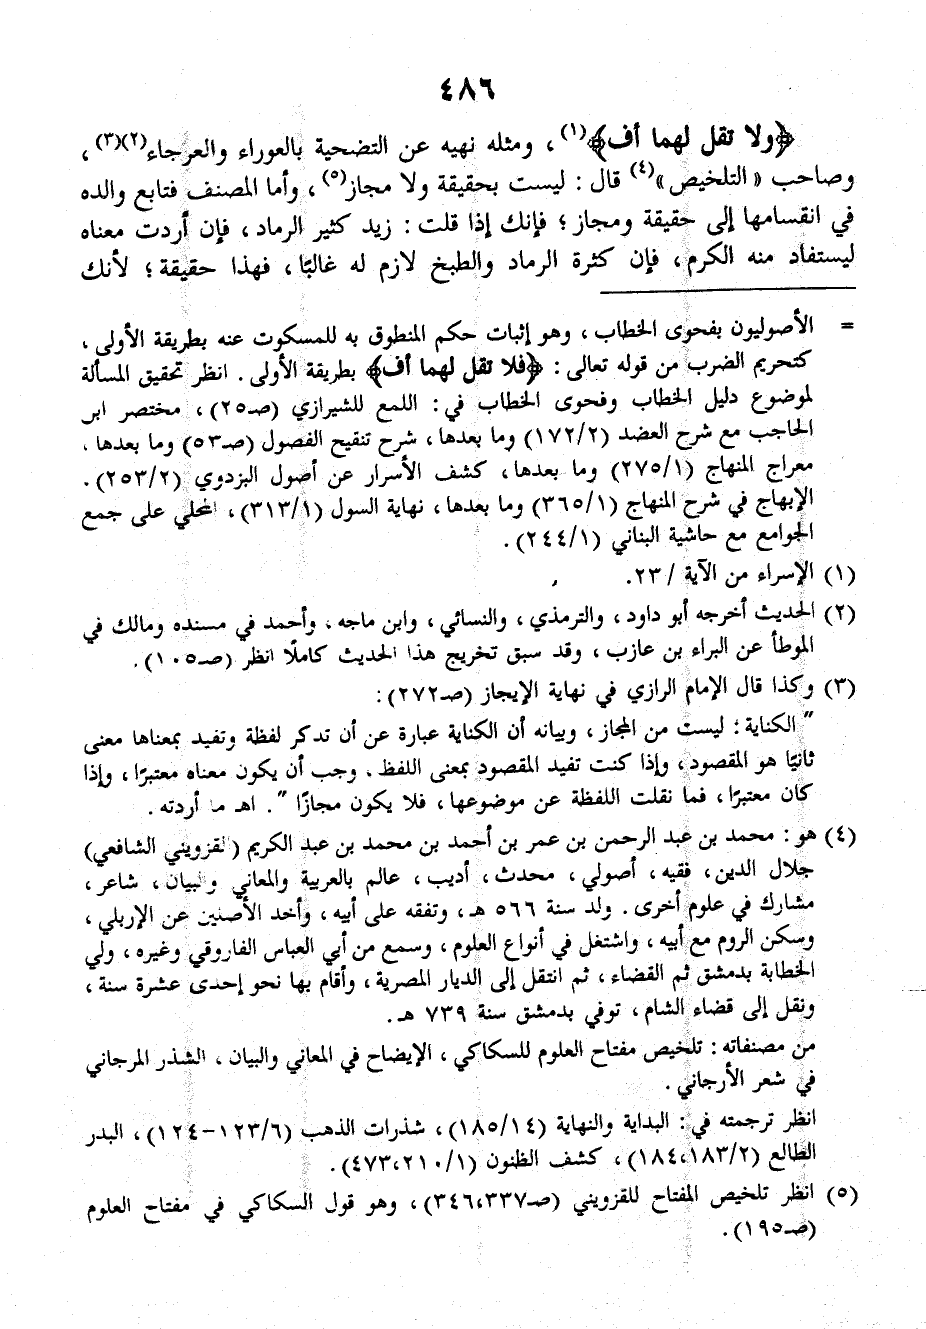 ٤٨٦
﴿ولا تقل لهما أف﴾(١) ، ومثله نهيه عن التضحية بالعوراء والعرجاء(٢)(٣) ،
وصاحب « التلخيص »(٤) قال : ليست بحقيقة ولا مجاز(٥) ، وأما المصنف فتابع والده
في انقسامها إلى حقيقة ومجاز ؛ فإنك إذا قلت : زيد كثير الرماد ، فإن أردت معناه
ليستفاد منه الكرم ، فإن كثرة الرماد والطبخ لازم له غالبًا ، فهذا حقيقة ؛ لأنك
= الأصوليون بفحوى الخطاب ، وهو إثبات حكم المنطوق به للمسكوت عنه بطريقة الأولى ،
كتحريم الضرب من قوله تعالى : ﴿فلا تقل لهما أف﴾ بطريقة الأولى . انظر تحقيق المسألة
لموضوع دليل الخطاب وفحوى الخطاب في : اللمع للشيرازي (صـ٢٥) ، مختصر ابن
الحاجب مع شرح العضد (١٧٢/٢) وما بعدها ، شرح تنقيح الفصول (صـ٥٣) وما بعدها ،
معراج المنهاج (٢٧٥/١) وما بعدها ، كشف الأسرار عن أصول البزدوي (٢٥٣/٢) .
الإبهاج في شرح المنهاج (٣٦٥/١) وما بعدها ، نهاية السول (٣١٣/١) ، المحلي على جمع
الجوامع مع حاشية البناني (٢٤٤/١) .
(١) الإسراء من الآية / ٢٣ .
(٢) الحديث أخرجه أبو داود ، والترمذي ، والنسائي ، وابن ماجه ، وأحمد في مسنده ومالك في
الموطأ عن البراء بن عازب ، وقد سبق تخريج هذا الحديث كاملًا انظر (صـ١٠٥) .
(٣) وكذا قال الإمام الرازي في نهاية الإيجاز (صـ٢٧٢) :
" الكناية : ليست من المجاز ، وبيانه أن الكناية عبارة عن أن تدكر لفظة وتفيد بمعناها معنى
ثانيًا هو المقصود ، وإذا كنت تفيد المقصود بمعنى اللفظ . وجب أن يكون معناه معتبرًا ، وإذا
كان معتبرًا ، فما نقلت اللفظة عن موضوعها ، فلا يكون مجازًا " . اهـ ما أردته .
(٤) هو : محمد بن عبد الرحمن بن عمر بن أحمد بن محمد بن عبد الكريم (القزويني الشافعي)
جلال الدين ، فقيه ، أصولي ، محدث ، أديب ، عالم بالعربية والمعاني والبيان ، شاعر ،
مشارك في علوم أخرى . ولد سنة ٥٦٦ هـ ، وتفقه على أبيه ، وأخد الأصلين عن الإربلي ،
وسكن الروم مع أبيه ، واشتغل في أنواع العلوم ، وسمع من أبي العباس الفاروقي وغيره ، ولي
الخطابة بدمشق ثم القضاء ، ثم انتقل إلى الديار المصرية ، وأقام بها نحو إحدى عشرة سنة ،
ونقل إلى قضاء الشام ، توفي بدمشق سنة ٧٣٩ هـ .
من مصنفاته : تلخيص مفتاح العلوم للسكاكي ، الإيضاح في المعاني والبيان ، الشذر المرجاني
في شعر الأرجاني .
انظر ترجمته في : البداية والنهاية (١٨٥/١٤) ، شذرات الذهب (١٢٣/٦–١٢٤) ، البدر
الطالع (١٨٤،١٨٣/٢) ، كشف الظنون (٤٧٣،٢١٠/١) .
(٥) انظر تلخيص المفتاح للقزويني (صـ٣٤٦،٣٣٧) ، وهو قول السكاكي في مفتاح العلوم
(صـ١٩٥) .